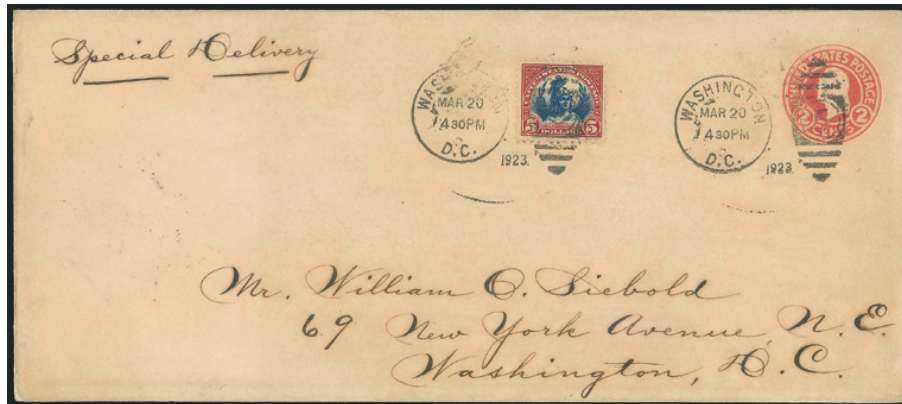 Special Delivery
WASHINGTON
MAR 20
4 30 PM
D.C.
1923.
UNITED STATES POSTAGE
5 DOLLARS 5
WASHINGTON
MAR 20
4 30 PM
D.C.
1923.
UNITED STATES POSTAGE
2 CENTS 2
Mr. William O. Siebold
69 New York Avenue, N.E.
Washington, D.C.